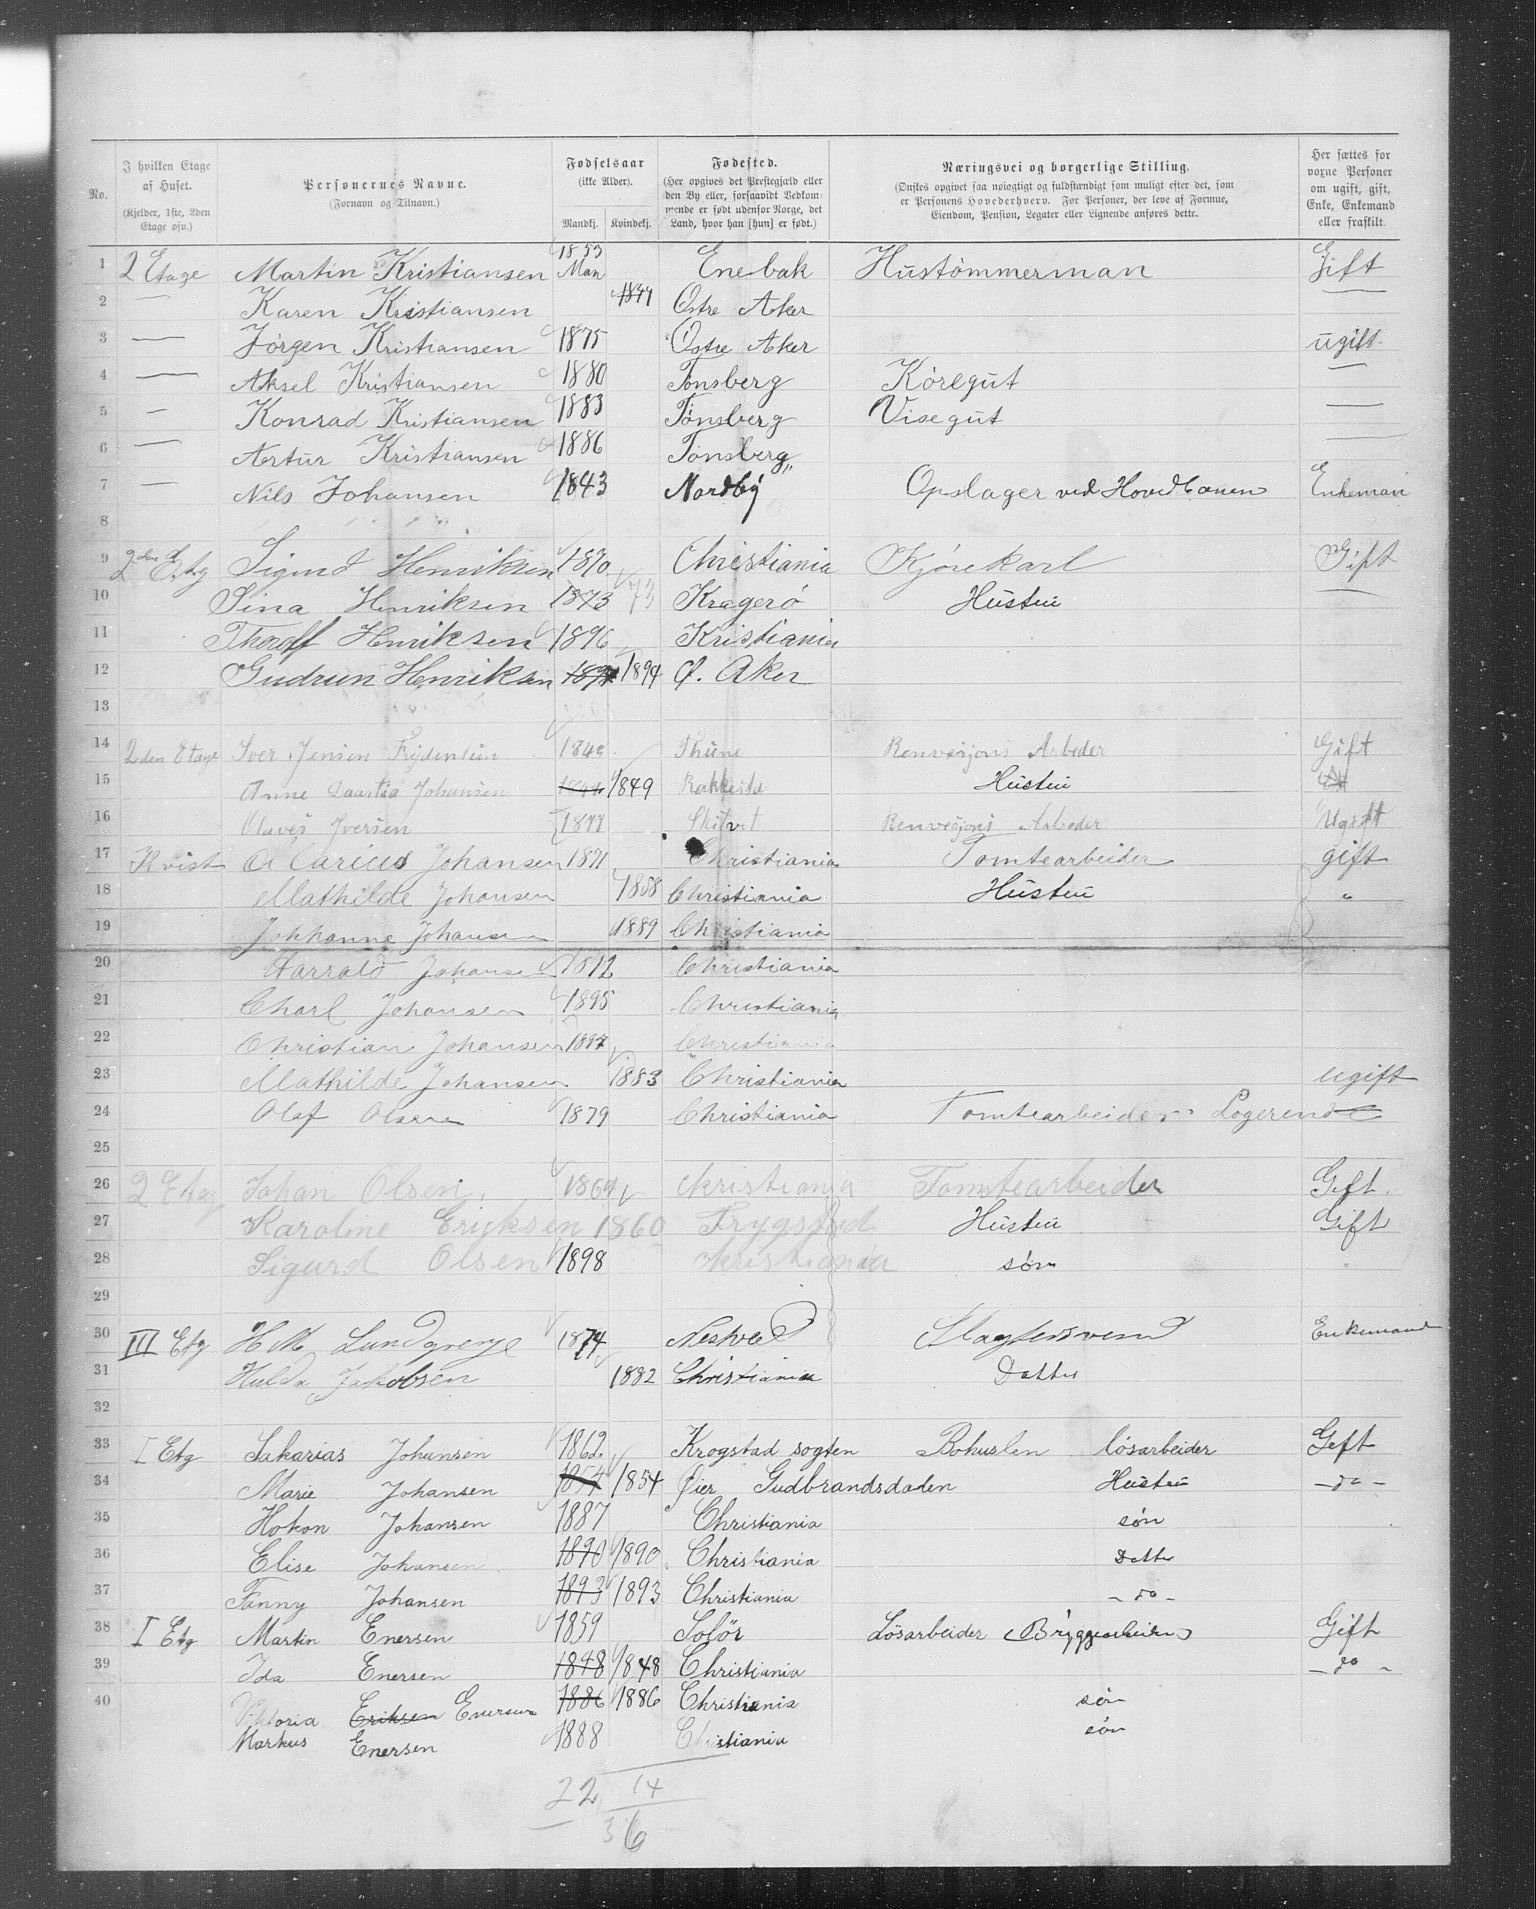 No. I hvilken Etage af Huset. (Kjelder, 1ste, 2den Etage osv.) Personernes Navne. (Fornavn og Tilnavn.) Fødselsaar (ikke Alder). Mandkj. Kvindekj. Fødested. (Her opgives det Prestegjæld eller den By eller, forsaavidt Vedkommende er født udenfor Norge, det Land, hvor han [hun] er født.) Næringsvei og borgerlige Stilling. (Ønskes opgivet saa nøiagtigt og fuldstændigt som muligt efter det, som er Personens Hovederhverv. For Personer, der leve af Formue, Eiendom, Pension, Legater eller Lignende anføres dette. Her sættes for voxne Personer om ugift, gift, Enke, Enkemand eller fraskilt.
1 2 Etage Martin Kristiansen 1853 Man Enebak Hustømmerman Gift
2 — Karen Kristiansen Østre Aker —
3 — Jørgen Kristiansen 1875 Østre Aker ugift
4 — Aksel Kristiansen 1880 Tønsberg Køregut —
5 — Konrad Kristiansen 1883 Tønsberg Visegut —
6 — Artur Kristiansen 1886 Tønsberg —
7 — Nils Johansen 1843 Nordby Opslager ved Hovedbanen Enkeman
8
9 2den Etg Sigurd Henriksen 1870 Christiania Kjørekarl Gift
10 Sina Henriksen 1873 73 Kragerø Hustru —
11 Thorolf Henriksen 1896 Kristiania
12 Gudrun Henriksen 1894 1894 Ø. Aker
13
14 2den Etage Iver Jensen Frydenlun Thune Renvasjons Arbeder Gift
15 Anne Johansen 1849 Rakkestad Hustru
16 Olaves Iversen 1877 Skibtvet Renvasjons Arbeder Ugift
17 Kvist Johansen 1871 Christiania Tomtearbeider gift
18 Mathilde Johansen 1858 Christiania Hustru "
19 Johanne Johansen 1889 Christiania
20 Harrald Johansen Christiania
21 Charl Johansen 1895 Christiania
22 Christian Johansen 1897 Christiania
23 Mathilde Johansen 1883 Christiania ugift
24 Olaf Olsen 1879 Christiania Tomtearbeider Logerende
25
26 2 Etag Johan Olsen 1869 Christiania Tomtearbeider Gift
27 Karoline Eriksen 1860 Trygstad Hustru Gift
28 Sigurd Olsen 1898 Christiania søn "
29
30 III Etg H M 1874 Slagtersvend Enkemand
31 Hulda Jakobsen 1882 Christiania Datter
32
33 I Etg Sakarias Johansen 1862 Krogstad sogten Bohuslen løsarbeider Gift
34 Marie Johansen 1854 1854 Øier Gudbrandsdaden Hustru — do —
35 Hokon Johansen 1887 Christiania søn
36 Elise Johansen 1890 1890 Christiania Datter
37 Fanny Johansen 1893 1893 Christiania — do —
38 I Etg Martin Enersen 1859 Solør Løsarbeider (Bryggearbeider) Gift
39 Ida Enersen 1848 1848 Christiania — do —
40 Viktoria Eriksen Enersen 1886 1886 Christiania søn
Markus Enersen 1888 Christiania søn
22 14
36